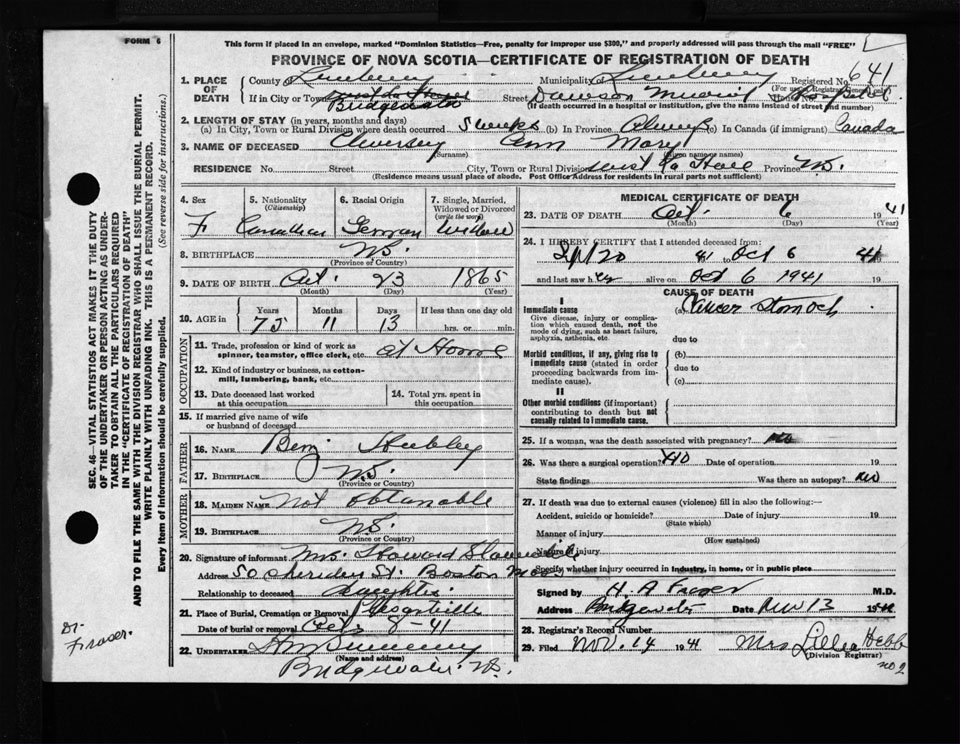 FORM 6
This form if placed in an envelope, marked "Dominion Statistics—Free, penalty for improper use $300," and properly addressed will pass through the mail "FREE"
PROVINCE OF NOVA SCOTIA—CERTIFICATE OF REGISTRATION OF DEATH
1. PLACE OF DEATH
County Lunenburg Municipality Lunenburg Registered No. 641
(For use of Registrar General)
If in City or Town Bridgewater Street Dawson Memorial Hospital
(If death occurred in a hospital or institution, give the name instead of street and number)
2. LENGTH OF STAY (in years, months and days)
(a) In City, Town or Rural Division where death occurred 5 weeks (b) In Province Always (c) In Canada (if immigrant) Canada
3. NAME OF DECEASED Ann Mary
(Surname) (Given name or names)
RESIDENCE No. Street City, Town or Rural Division Province N.S.
(Residence means usual place of abode. Post Office Address for residents in rural parts not sufficient)
4. Sex F
5. Nationality (Citizenship) Canadian
6. Racial Origin German
7. Single, Married, Widowed or Divorced (write the word) Widow
8. BIRTHPLACE N.S.
(Province or Country)
9. DATE OF BIRTH Oct. 23 1865
(Month) (Day) (Year)
10. AGE in Years 75 Months 11 Days 13 If less than one day old hrs. or min.
OCCUPATION
11. Trade, profession or kind of work as spinner, teamster, office clerk, etc. at Home
12. Kind of industry or business, as cotton-mill, lumbering, bank, etc.
13. Date deceased last worked at this occupation
14. Total yrs. spent in this occupation
15. If married give name of wife or husband of deceased
FATHER
16. NAME Benj
17. BIRTHPLACE N.S.
(Province or Country)
MOTHER
18. MAIDEN NAME Not obtainable
19. BIRTHPLACE N.S.
(Province or Country)
20. Signature of informant Mrs. Howard
Address 50 St. Boston Mass
Relationship to deceased daughter
21. Place of Burial, Cremation or Removal Pleasantville
Date of burial or removal Oct 8-41
22. UNDERTAKER Sweeney
(Name and address)
Bridgewater N.S.
MEDICAL CERTIFICATE OF DEATH
23. DATE OF DEATH Oct. 6 1941
(Month) (Day)
24. I HEREBY CERTIFY that I attended deceased from:
Sept 20 41 to Oct 6 41
and last saw her alive on Oct 6 1941 19
CAUSE OF DEATH
I
Immediate cause
Give disease, injury or complication which caused death, not the mode of dying, such as heart failure, asphyxia, asthenia, etc.
(a) Cancer Stomach
due to
Morbid conditions, if any, giving rise to immediate cause (stated in order proceeding backwards from immediate cause).
(b)
due to
(c)
II
Other morbid conditions (if important) contributing to death but not causally related to immediate cause.
25. If a woman, was the death associated with pregnancy? no
26. Was there a surgical operation? no Date of operation 19
State findings Was there an autopsy? no
27. If death was due to external causes (violence) fill in also the following:—
Accident, suicide or homicide? Date of injury 19
(State which)
Manner of injury
(How sustained)
Nature of injury
Specify whether injury occurred in industry, in home, or in public place
Signed by H. A Fraser M.D.
Address Bridgewater Date Nov 13 1941
28. Registrar's Record Number
29. Filed Nov. 14 1941 Mrs Lillia Hebb
(Division Registrar)
no 2
SEC. 46—VITAL STATISTICS ACT MAKES IT THE DUTY OF THE UNDERTAKER OR PERSON ACTING AS UNDERTAKER TO OBTAIN ALL THE PARTICULARS REQUIRED IN THE "CERTIFICATE OF REGISTRATION OF DEATH" AND TO FILE THE SAME WITH THE DIVISION REGISTRAR WHO SHALL ISSUE THE BURIAL PERMIT.
WRITE PLAINLY WITH UNFADING INK. THIS IS A PERMANENT RECORD.
Every item of information should be carefully supplied. (See reverse side for instructions.)
Dr. Fraser.